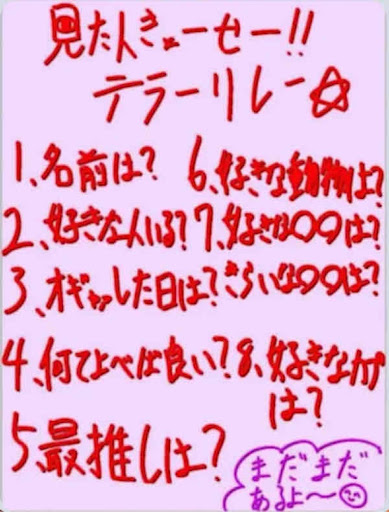 見た人きょーせー!!
テラーリレー☆
1、名前は?
2、好きな人いる?
3、オギャッした日は?
4、何てよべば良い?
5、最推しは?
6、好きな動物は?
7、好きな〇〇は?
きらいな〇〇は?
8、好きな
は?
まだまだ
あるよ〜